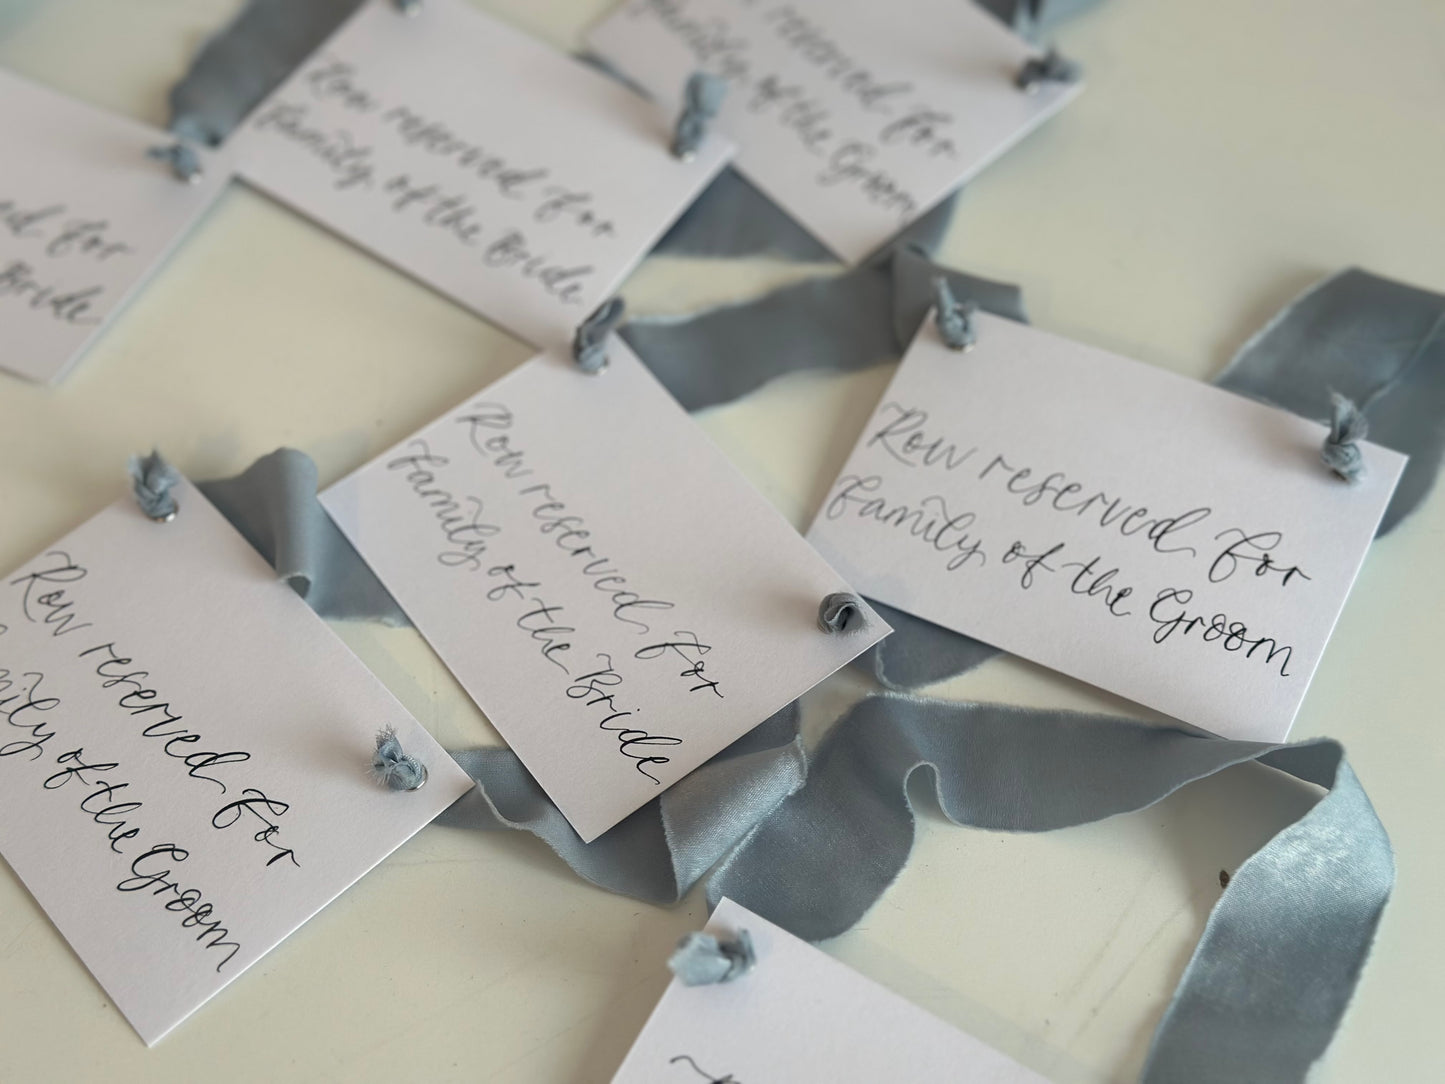 reserved for
Family of the Groom
Row reserved for
Family of the Bride
ed for
Bride
Row reserved for
Family of the Bride
Row reserved for
Family of the Groom
Row reserved for
Family of the Groom